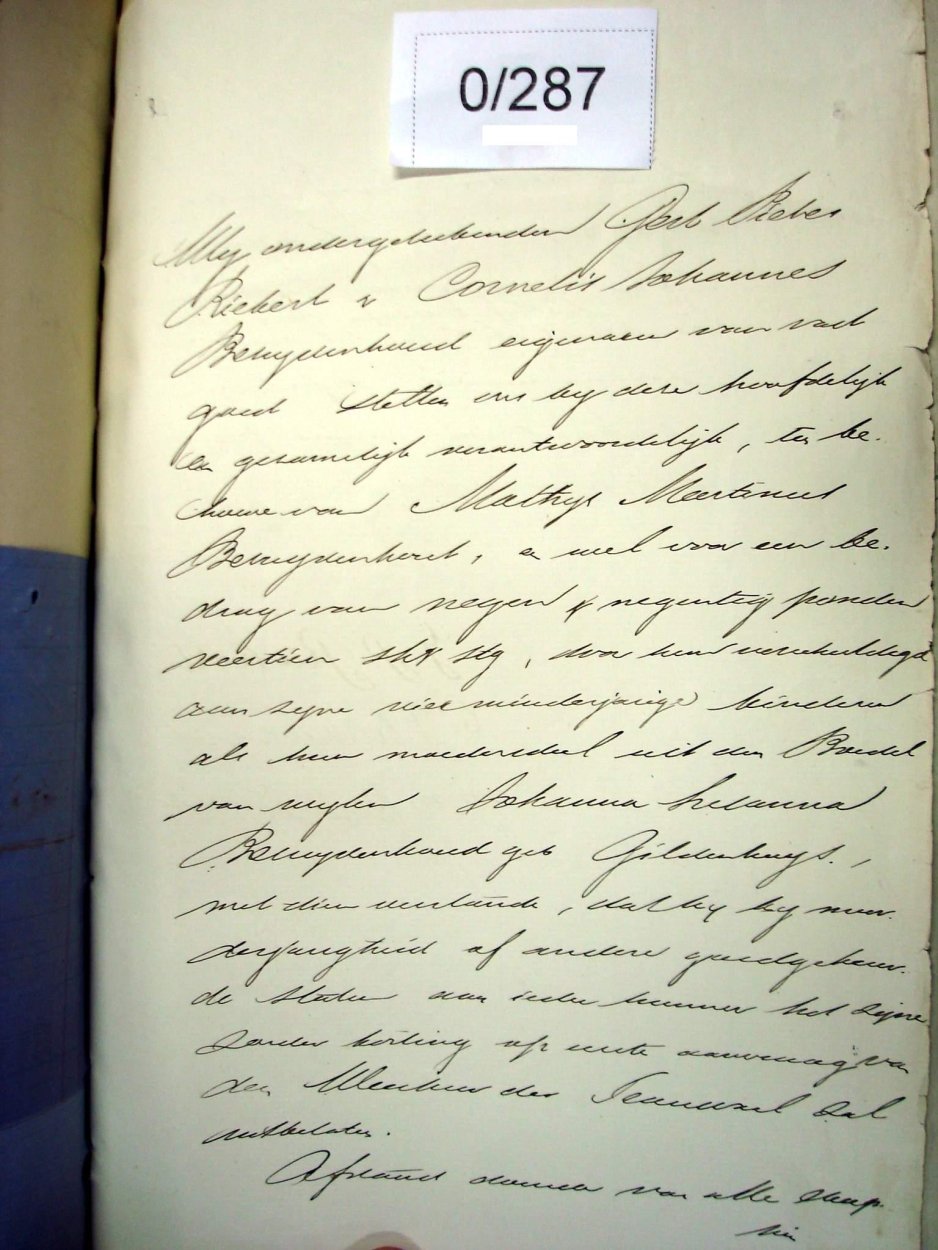 0/287
Wy ondergeteekenden Gert Pieter
Riekert & Cornelis Johannes
Bezuydenhoud eigenaren van vast
goed stellen ons by deze hoofdelijk
en gezamelijk verantwoordelijk, ten be-
hoeve van Mathys Martinus
Bezuydenhout, en wel voor een be-
drag van negen & negentig ponden
veertien sh stg, door hem verschuldigd
aan zyne minderjarige kinderen
als hun moedersdeel uit den Boedel
van wylen Johanna Susanna
Bezuydenhoud geb Gildenhuys.,
met dien verstande, dat hy by meer-
derjarigheid of andere goedgekeur-
de staten aan ieder hunner het zyne
zonder korting op eerste aanvraag van
den Weesheer der Transvaal zal
uitbetalen.
Afstand doende van alle excep-